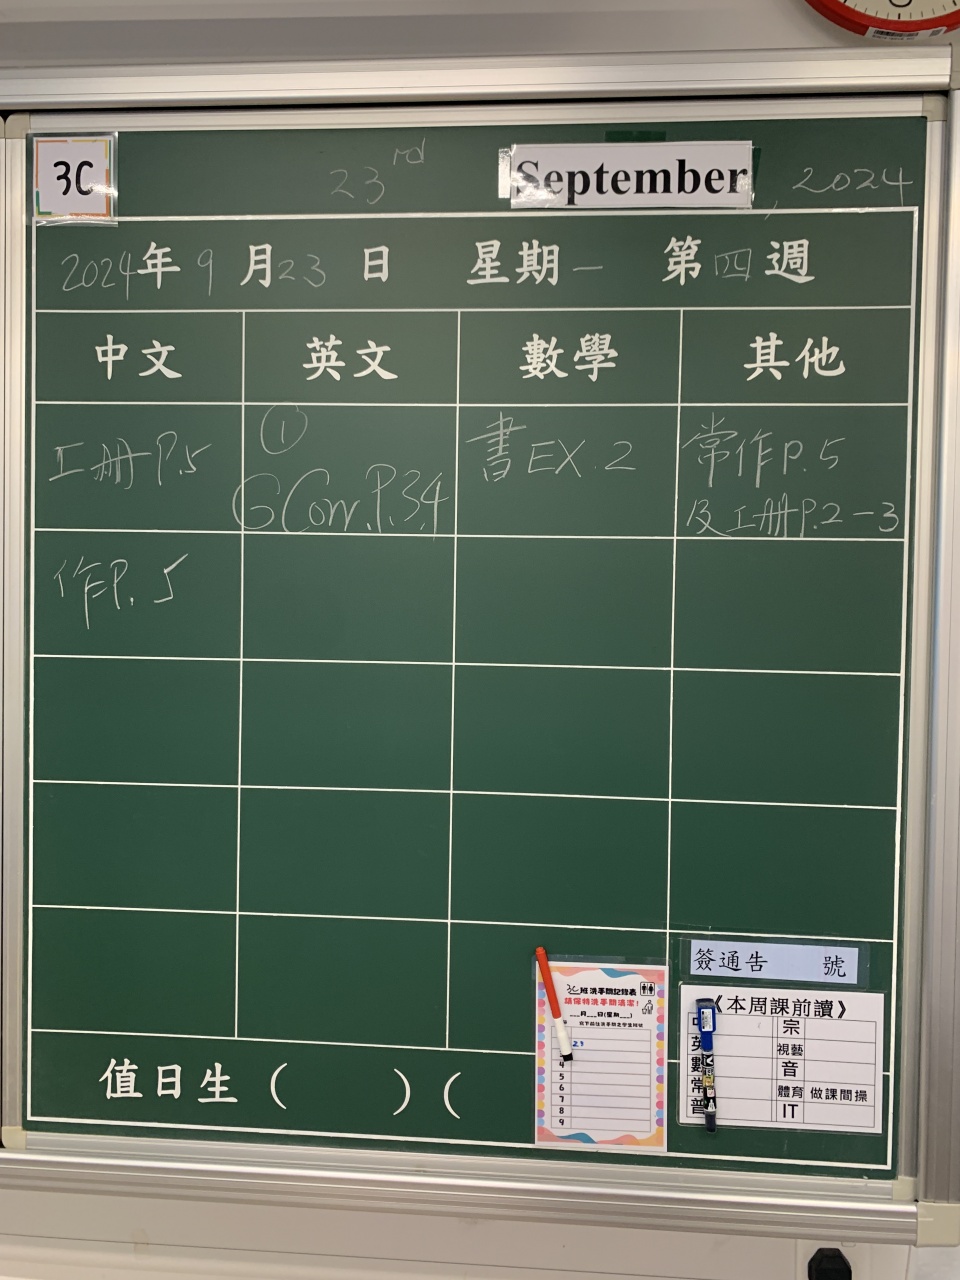 3C
23rd September, 2024
2024年9月23日 星期一 第四週
中文 英文 數學 其他
工册P.5
①
GCorr.P.3,4
書EX.2
常作P.5
及工册P.2-3
作P.5
簽通告 號
3C班洗手間記錄表
請保持洗手間清潔!
___月___日(星期___)
21
4
5
6
7
8
9
《本周課前讀》
宗
英 視藝
數 音
常 體育 做課間操
普 IT
值日生( )(